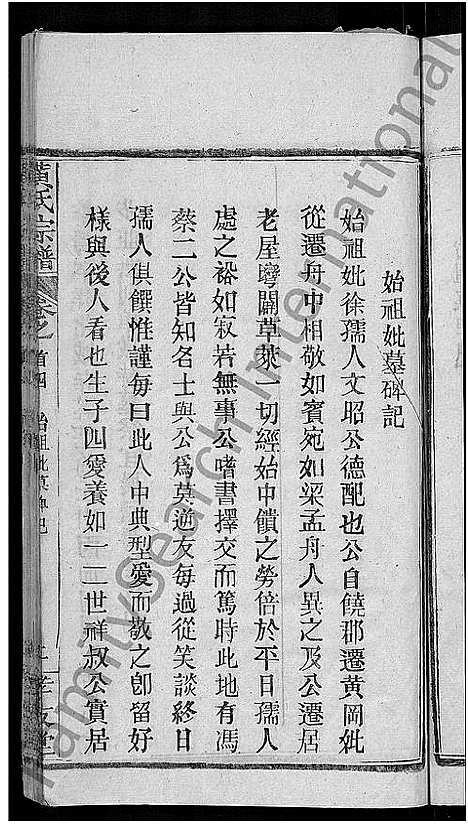 始祖妣墓碑記
始祖妣徐孺人文昭公德配也公自饒郡遷黃岡妣
從遷舟中相敬如賓宛如梁孟舟人異之及公遷居
老屋塆闢草萊一切經始中饋之勞倍於平日孺人
處之裕如寂若無事公嗜書擇交而篤時此地有馮
蔡二公皆知名士與公爲莫逆友每過從笑談終日
孺人俱饌惟謹每曰此人中典型愛而敬之卽留好
樣與後人看也生子四愛養如一二世祥叔公實居
黃氏宗譜 卷之首四 始祖妣墓碑記 孝友堂
FamilySearch International